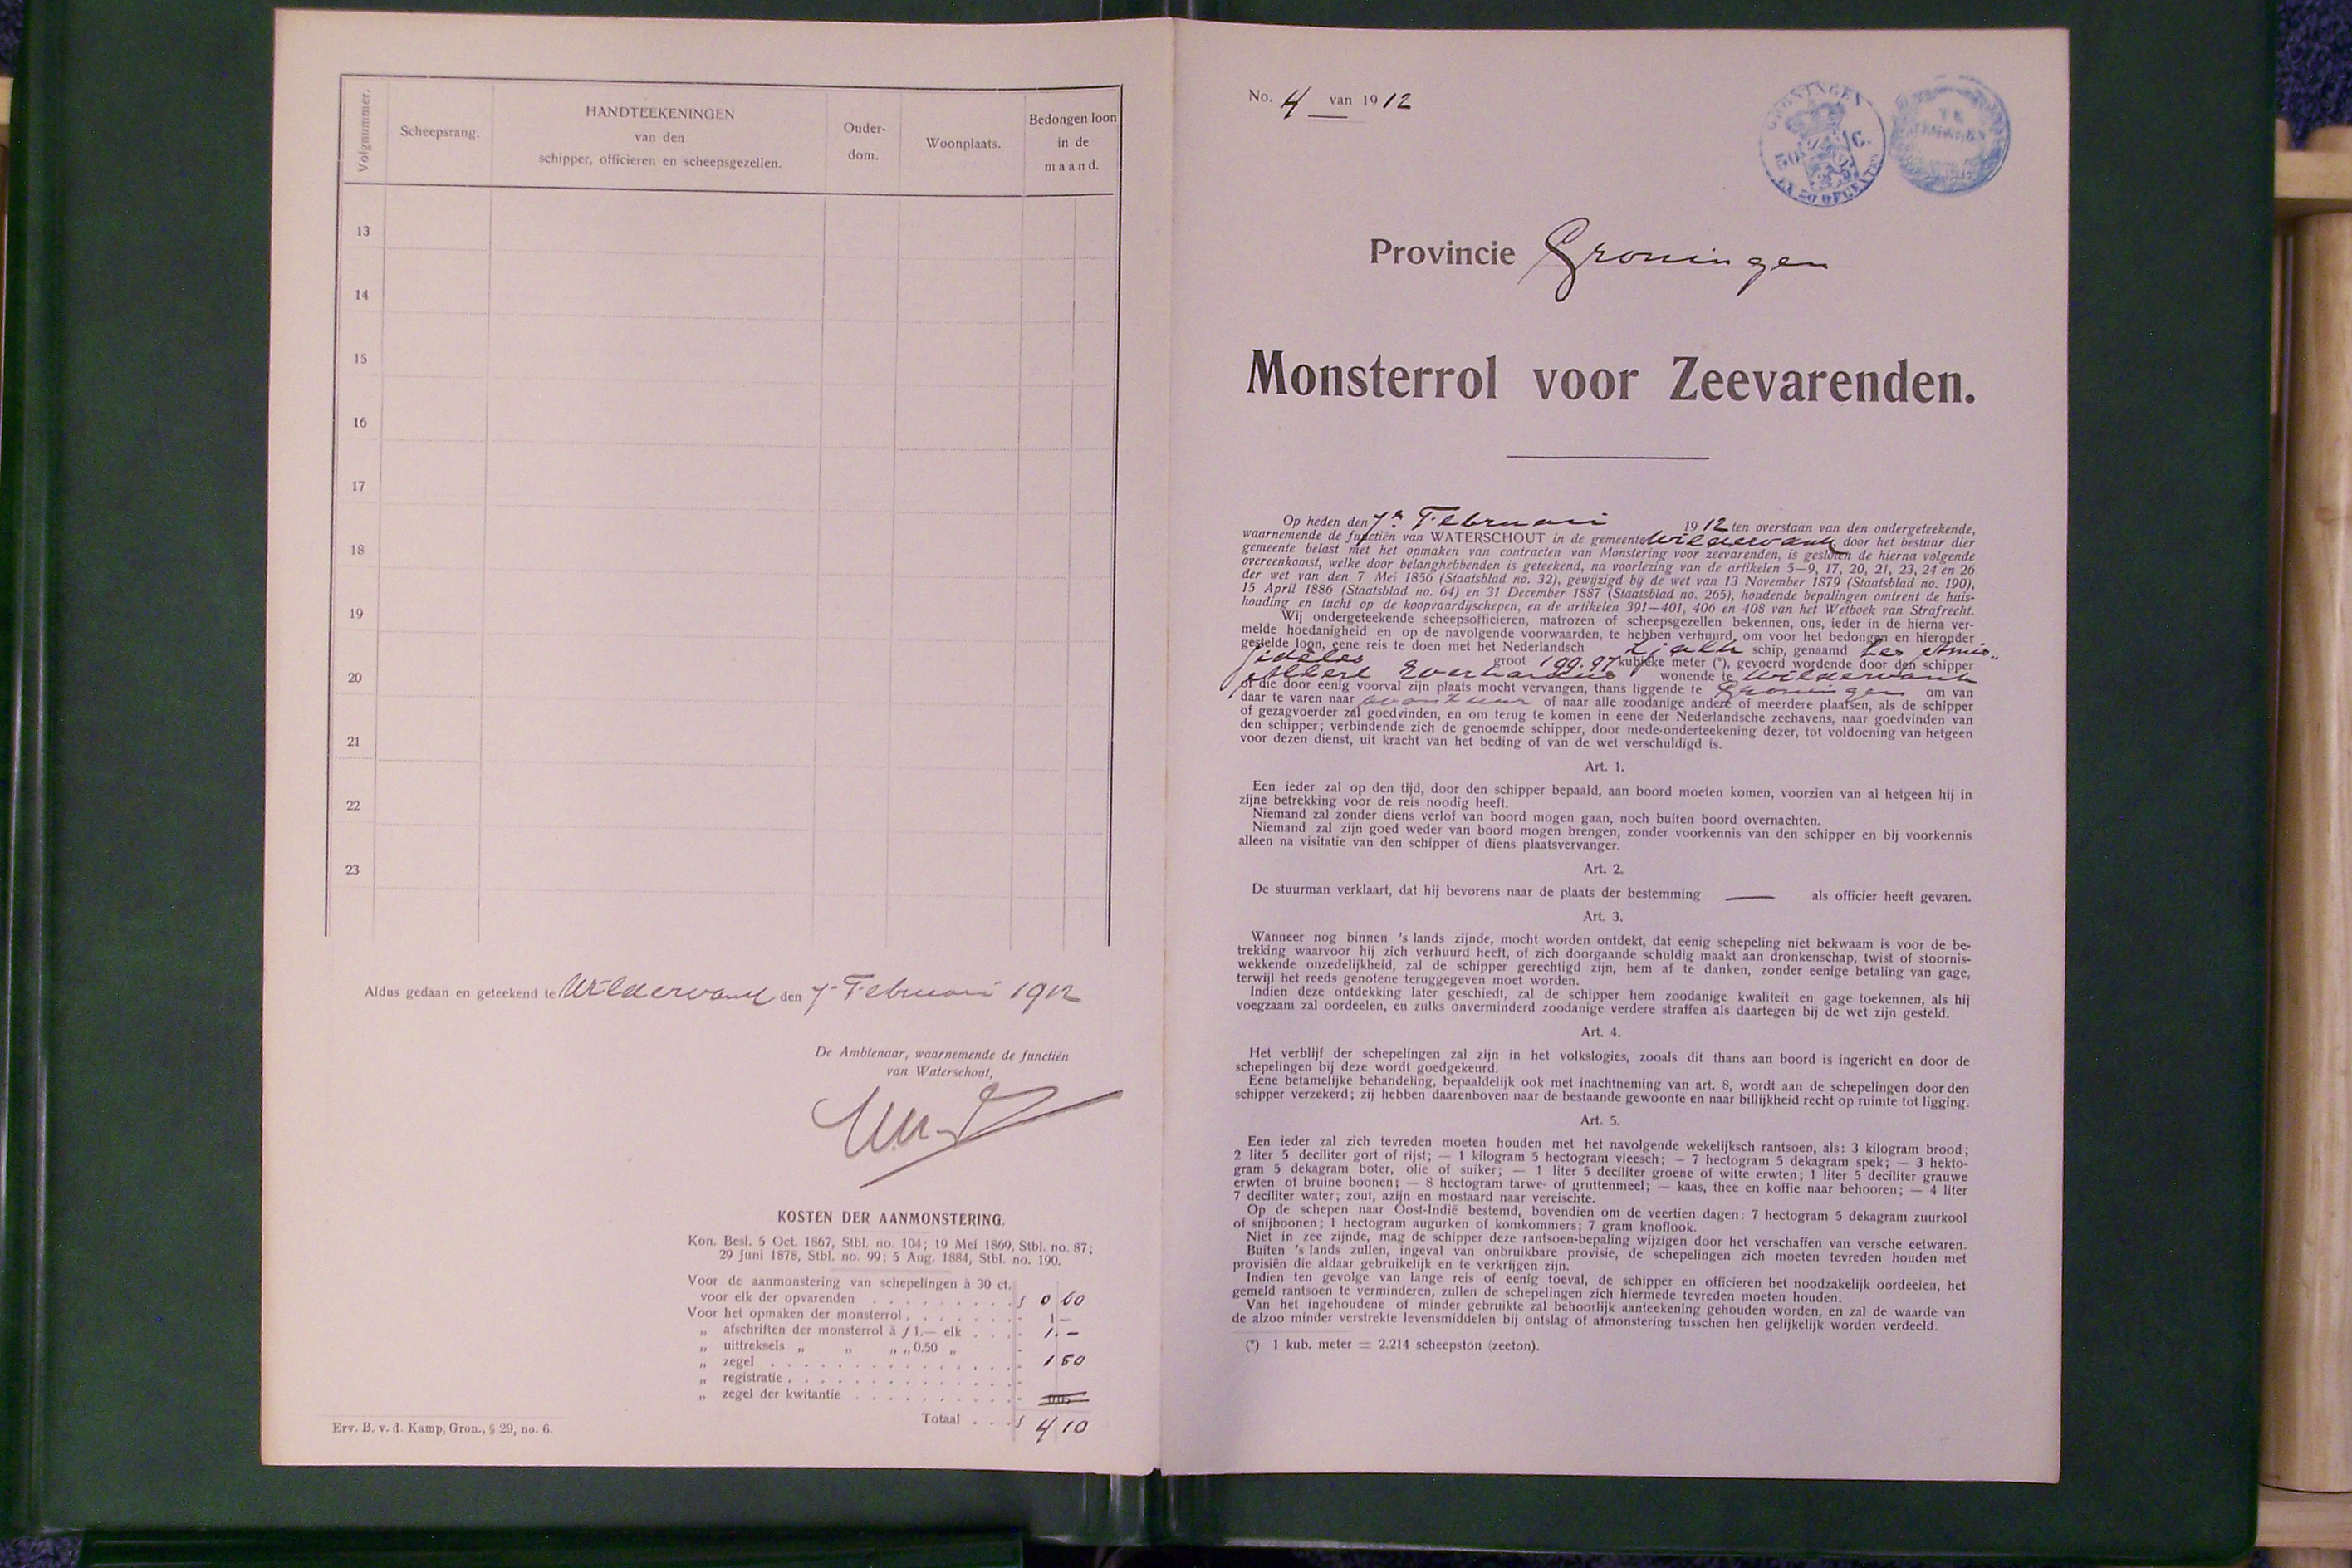 Volgnummer.
Scheepsrang.
HANDTEEKENINGEN
van den
schipper, officieren en scheepsgezellen.
Ouder-
dom.
Woonplaats.
Bedongen loon
in de
maand.
13
14
15
16
17
18
19
20
21
22
23
Aldus gedaan en geteekend te Wildervank den 7 Februari 1912
De Ambtenaar, waarnemende de functiën
van Waterschout,
KOSTEN DER AANMONSTERING.
Kon. Besl. 5 Oct. 1867, Stbl. no. 104; 19 Mei 1869, Stbl. no. 87;
29 Juni 1878, Stbl. no. 99; 5 Aug. 1884, Stbl. no. 190.
Voor de aanmonstering van schepelingen à 30 ct.
voor elk der opvarenden . . . . . . . . . f 0 60
Voor het opmaken der monsterrol . . . . . . . - 1 —
„ afschriften der monsterrol à f 1.— elk . . . - 1.-
„ uittreksels „ „ „ „ 0.50 „ -
„ zegel . . . . . . . . . . . . . . . - 1 50
„ registratie . . . . . . . . . . . . . . -
„ zegel der kwitantie . . . . . . . . . . - 0.05
Totaal . . . f 4 10
Erv. B. v. d. Kamp, Gron., § 29, no. 6.
No. 4 van 1912
GRONINGEN
50 C.
Provincie Groningen
Monsterrol voor Zeevarenden.
Op heden den 7n Februari 1912 ten overstaan van den ondergeteekende,
waarnemende de functiën van WATERSCHOUT in de gemeente Wildervank, door het bestuur dier
gemeente belast met het opmaken van contracten van Monstering voor zeevarenden, is gesloten de hierna volgende
overeenkomst, welke door belanghebbenden is geteekend, na voorlezing van de artikelen 5—9, 17, 20, 21, 23, 24 en 26
der wet van den 7 Mei 1856 (Staatsblad no. 32), gewijzigd bij de wet van 13 November 1879 (Staatsblad no. 190),
15 April 1886 (Staatsblad no. 64) en 31 December 1887 (Staatsblad no. 265), houdende bepalingen omtrent de huis-
houding en tucht op de koopvaardijschepen, en de artikelen 391—401, 406 en 408 van het Wetboek van Strafrecht.
Wij ondergeteekende scheepsofficieren, matrozen of scheepsgezellen bekennen, ons, ieder in de hierna ver-
melde hoedanigheid en op de navolgende voorwaarden, te hebben verhuurd, om voor het bedongen en hieronder
gestelde loon, eene reis te doen met het Nederlandsch tjalk schip, genaamd Les Amis
fidèles groot 199.97 kubieke meter (*), gevoerd wordende door den schipper
Albert Everhardus wonende te Wildervank
of die door eenig voorval zijn plaats mocht vervangen, thans liggende te Groningen om van
daar te varen naar avontuur of naar alle zoodanige andere of meerdere plaatsen, als de schipper
of gezagvoerder zal goedvinden, en om terug te komen in eene der Nederlandsche zeehavens, naar goedvinden van
den schipper; verbindende zich de genoemde schipper, door mede-onderteekening dezer, tot voldoening van hetgeen
voor dezen dienst, uit kracht van het beding of van de wet verschuldigd is.
Art. 1.
Een ieder zal op den tijd, door den schipper bepaald, aan boord moeten komen, voorzien van al hetgeen hij in
zijne betrekking voor de reis noodig heeft.
Niemand zal zonder diens verlof van boord mogen gaan, noch buiten boord overnachten.
Niemand zal zijn goed weder van boord mogen brengen, zonder voorkennis van den schipper en bij voorkennis
alleen na visitatie van den schipper of diens plaatsvervanger.
Art. 2.
De stuurman verklaart, dat hij bevorens naar de plaats der bestemming — als officier heeft gevaren.
Art. 3.
Wanneer nog binnen 's lands zijnde, mocht worden ontdekt, dat eenig schepeling niet bekwaam is voor de be-
trekking waarvoor hij zich verhuurd heeft, of zich doorgaande schuldig maakt aan dronkenschap, twist of stoornis-
wekkende onzedelijkheid, zal de schipper gerechtigd zijn, hem af te danken, zonder eenige betaling van gage,
terwijl het reeds genotene teruggegeven moet worden.
Indien deze ontdekking later geschiedt, zal de schipper hem zoodanige kwaliteit en gage toekennen, als hij
voegzaam zal oordeelen, en zulks onverminderd zoodanige verdere straffen als daartegen bij de wet zijn gesteld.
Art. 4.
Het verblijf der schepelingen zal zijn in het volkslogies, zooals dit thans aan boord is ingericht en door de
schepelingen bij deze wordt goedgekeurd.
Eene betamelijke behandeling, bepaaldelijk ook met inachtneming van art. 8, wordt aan de schepelingen door den
schipper verzekerd; zij hebben daarenboven naar de bestaande gewoonte en naar billijkheid recht op ruimte tot ligging.
Art. 5.
Een ieder zal zich tevreden moeten houden met het navolgende wekelijksch rantsoen, als: 3 kilogram brood;
2 liter 5 deciliter gort of rijst; — 1 kilogram 5 hectogram vleesch; — 7 hectogram 5 dekagram spek; — 3 hekto-
gram 5 dekagram boter, olie of suiker; — 1 liter 5 deciliter groene of witte erwten; 1 liter 5 deciliter grauwe
erwten of bruine boonen; — 8 hectogram tarwe- of gruttenmeel; — kaas, thee en koffie naar behooren; — 4 liter
7 deciliter water; zout, azijn en mostaard naar vereischte.
Op de schepen naar Oost-Indië bestemd, bovendien om de veertien dagen: 7 hectogram 5 dekagram zuurkool
of snijboonen; 1 hectogram augurken of komkommers; 7 gram knoflook.
Niet in zee zijnde, mag de schipper deze rantsoen-bepaling wijzigen door het verschaffen van versche eetwaren.
Buiten 's lands zullen, ingeval van onbruikbare provisie, de schepelingen zich moeten tevreden houden met
provisiën die aldaar gebruikelijk en te verkrijgen zijn.
Indien ten gevolge van lange reis of eenig toeval, de schipper en officieren het noodzakelijk oordeelen, het
gemeld rantsoen te verminderen, zullen de schepelingen zich hiermede tevreden moeten houden.
Van het ingehoudene of minder gebruikte zal behoorlijk aanteekening gehouden worden, en zal de waarde van
de alzoo minder verstrekte levensmiddelen bij ontslag of afmonstering tusschen hen gelijkelijk worden verdeeld.
(*) 1 kub. meter = 2.214 scheepston (zeeton).